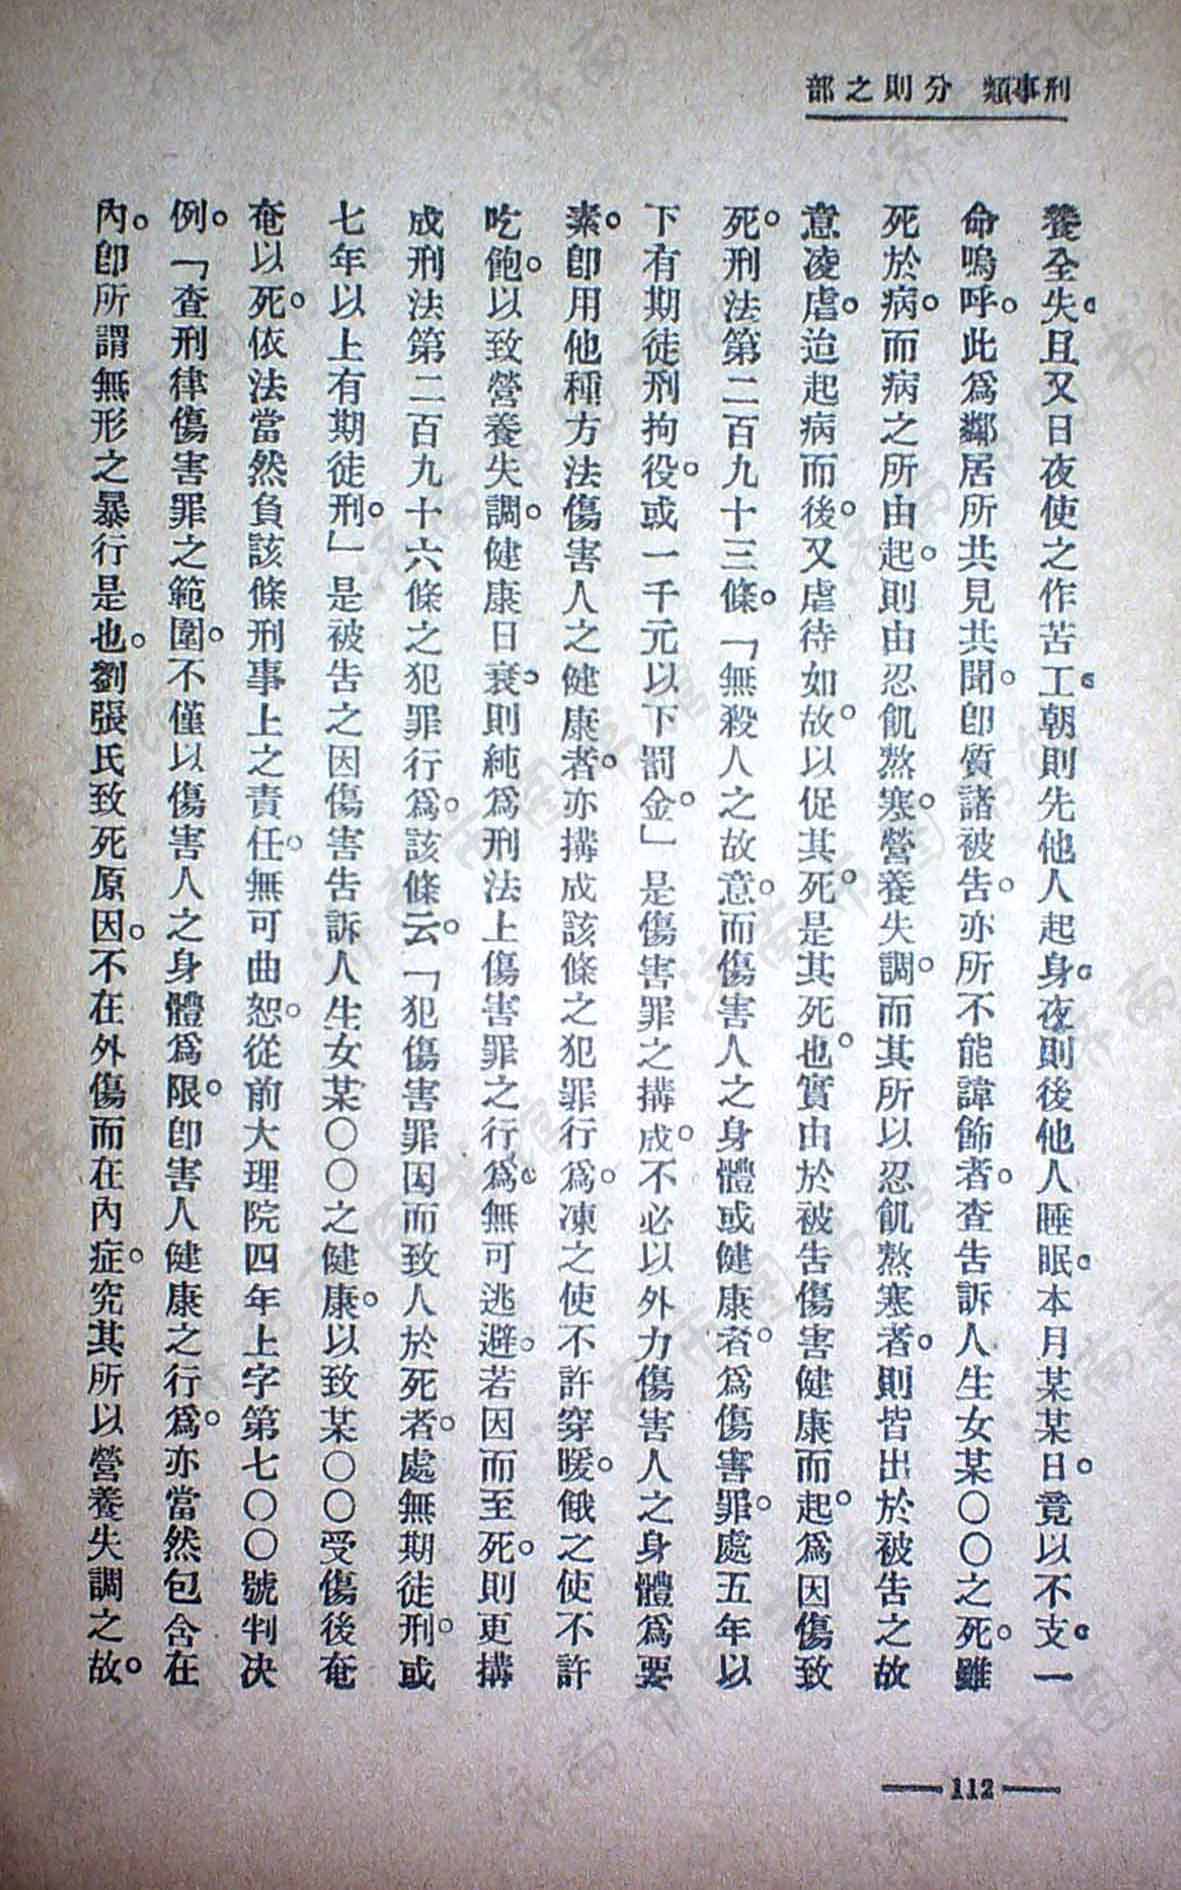 刑事類　分則之部
養全失。且又日夜使之作苦工。朝則先他人起身。夜則後他人睡眠。本月某某日。竟以不支。一
命嗚呼。此爲鄰居所共見共聞。卽質諸被告。亦所不能諱飾者。查告訴人生女某〇〇之死。雖
死於病。而病之所由起。則由忍飢熬寒。營養失調。而其所以忍飢熬寒者。則皆出於被告之故
意凌虐。迨起病而後。又虐待如故。以促其死。是其死也。實由於被告傷害健康而起。爲因傷致
死。刑法第二百九十三條。「無殺人之故意。而傷害人之身體或健康者。爲傷害罪。處五年以
下有期徒刑拘役。或一千元以下罰金。」是傷害罪之搆成。不必以外力傷害人之身體爲要
素。卽用他種方法傷害人之健康者。亦搆成該條之犯罪行爲。凍之使不許穿暖。餓之使不許
吃飽。以致營養失調。健康日衰。則純爲刑法上傷害罪之行爲。無可逃避。若因而至死。則更搆
成刑法第二百九十六條之犯罪行爲。該條云。「犯傷害罪因而致人於死者。處無期徒刑。或
七年以上有期徒刑。」是被告之因傷害告訴人生女某〇〇之健康。以致某〇〇受傷後奄
奄以死。依法當然負該條刑事上之責任。無可曲恕。從前大理院四年上字第七〇〇號判決
例。「查刑律傷害罪之範圍。不僅以傷害人之身體爲限。卽害人健康之行爲。亦當然包含在
內。卽所謂無形之暴行是也。劉張氏致死原因。不在外傷而在內症。究其所以營養失調之故。
112